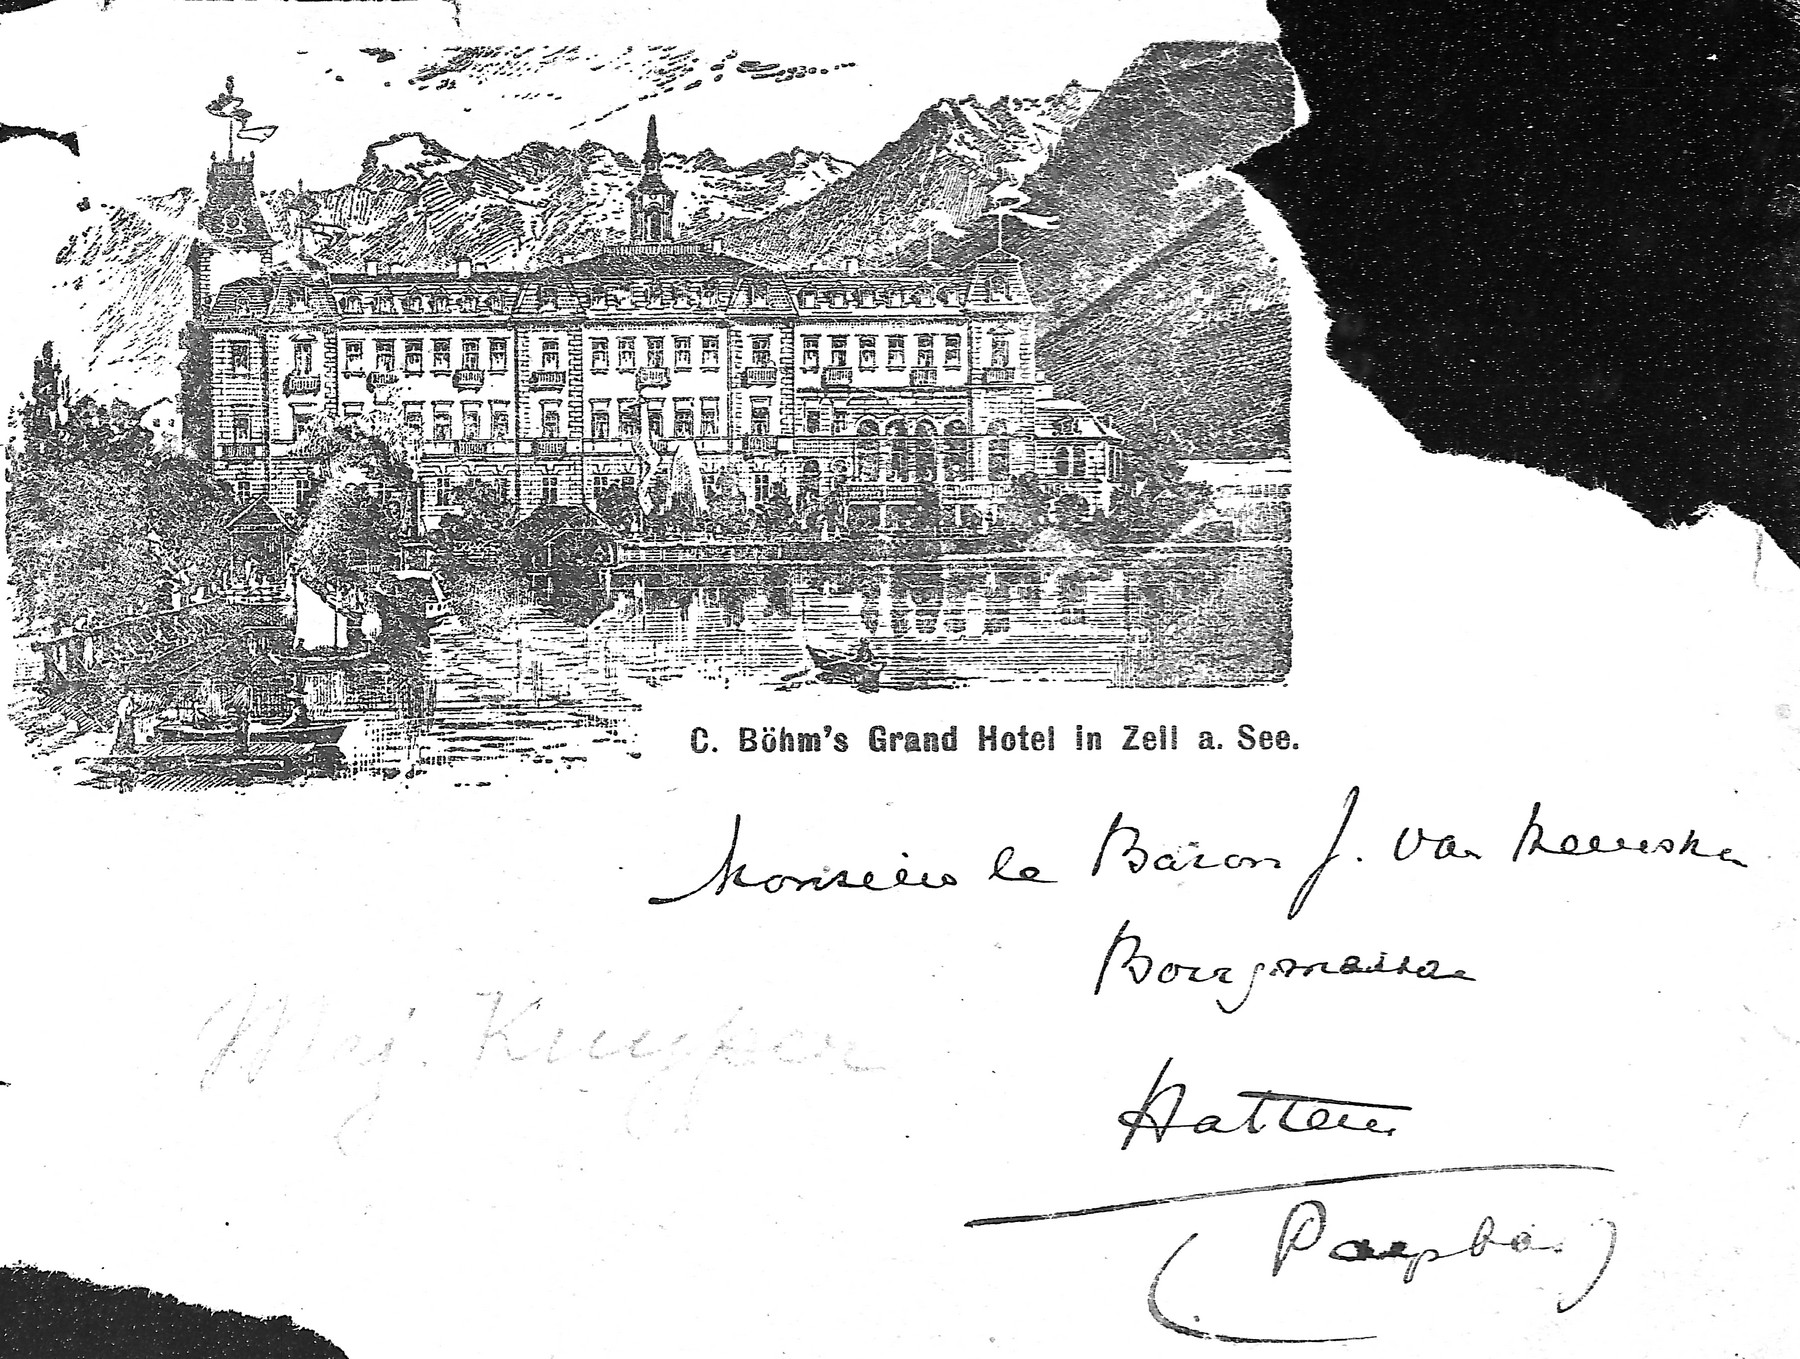 C. Böhm's Grand Hotel in Zell a. See.
Monsieur le Baron J. van Heemstra
Bourgmaitre
Maj. Kuyper
Hattem
(Paysbas)